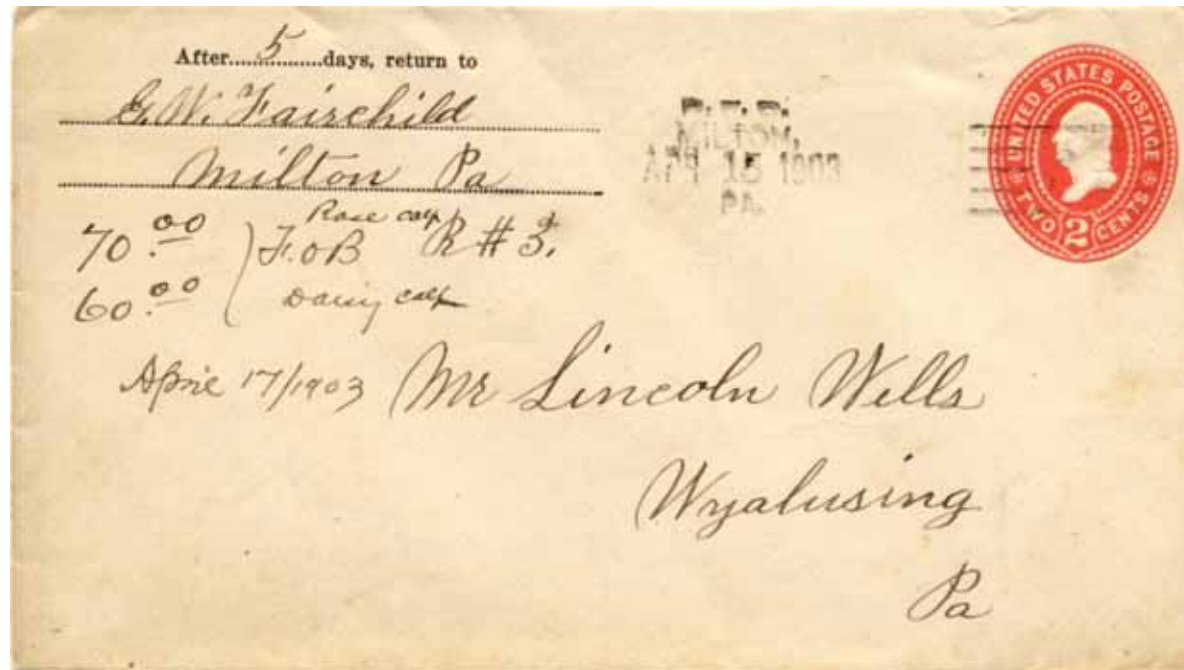 After 5 days, return to
G. W. Fairchild
Milton Pa
R. F. D.
MILTON,
APR 15 1903
PA.
UNITED STATES POSTAGE
TWO 2 CENTS
Rose calf
70.00 ) F.O.B R # 3.
60.00 ( Daisy calf
April 17/1903
Mr Lincoln Wells
Wyalusing
Pa